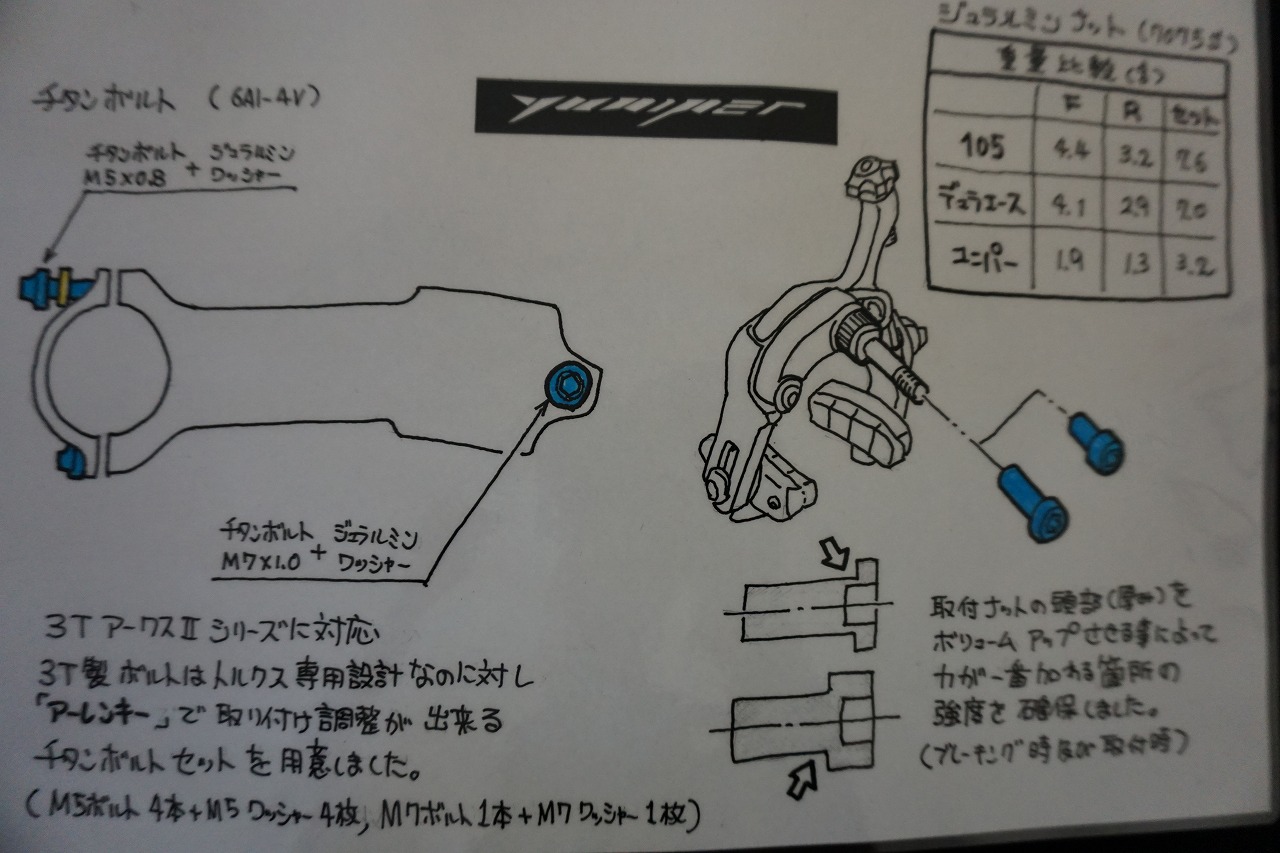 チタンボルト (6Al-4V)
チタンボルト + ジュラルミン
M5×0.8 ワッシャー
yuniper
ジュラルミンナット (7075♯)
重量比較(g)
F R セット
105 4.4 3.2 7.6
デュラエース 4.1 2.9 7.0
ユニパー 1.9 1.3 3.2
チタンボルト + ジュラルミン
M7×1.0 ワッシャー
3T アークスⅡ シリーズに対応
3T製 ボルトはトルクス専用設計なのに対し
「アーレンキー」で取り付け調整が出来る
チタンボルトセットを用意しました。
(M5ボルト4本+M5ワッシャー4枚, M7ボルト1本+M7ワッシャー1枚)
取付ナットの頭部(厚み)を
ボリュームアップさせる事によって
力が一番加わる箇所の
強度を確保しました。
(ブレーキング時及び取付時)